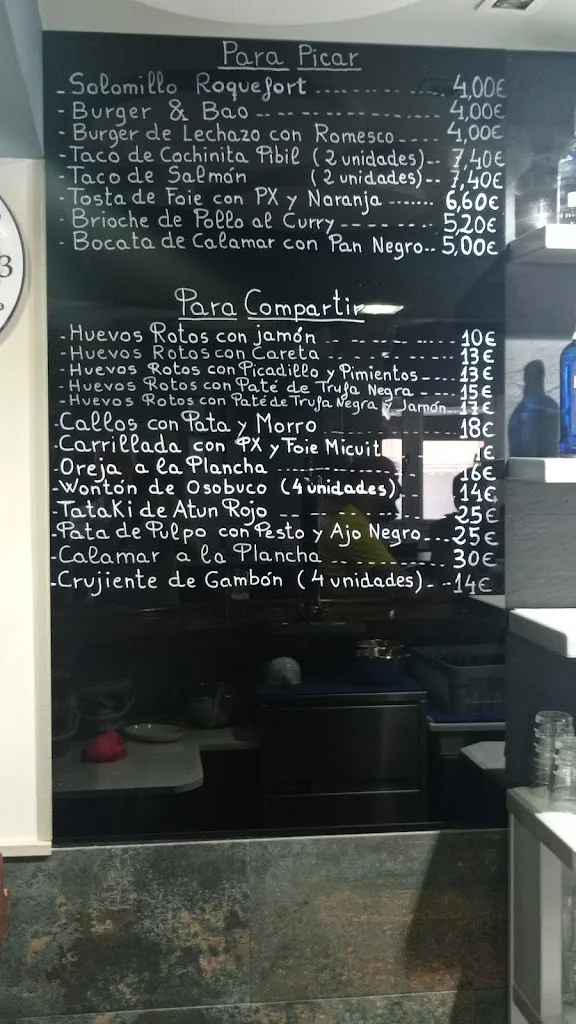 Para Picar
- Solomillo Roquefort ........... 4,00€
- Burger & Bao ------------- 4,00€
- Burger de Lechazo con Romesco---- 4,00€
- Taco de Cochinita Pibil (2 unidades)-- 7,40€
- Taco de Salmón (2 unidades)-- 7,40€
- Tosta de Foie con PX y Naranja ....... 6,60€
- Brioche de Pollo al Curry-------- 5,20€
- Bocata de Calamar con Pan Negro-- 5,00€
Para Compartir
- Huevos Rotos con jamón ---------- 10€
- Huevos Rotos con Careta ---------- 13€
- Huevos Rotos con Picadillo y Pimientos---- 13€
- Huevos Rotos con Paté de Trufa Negra ---- 15€
- Huevos Rotos con Paté de Trufa Negra y Jamón 17€
- Callos con Pata y Morro -------- 18€
- Carrillada con PX y Foie Micuit
- Oreja a la Plancha ------------ 16€
- Wontón de Osobuco (4 unidades)---- 14€
- Tataki de Atun Rojo ------------ 25€
- Pata de Pulpo con Pesto y Ajo Negro---- 25€
- Calamar a la Plancha ---------- 30€
- Crujiente de Gambón (4 unidades)- --14€
3